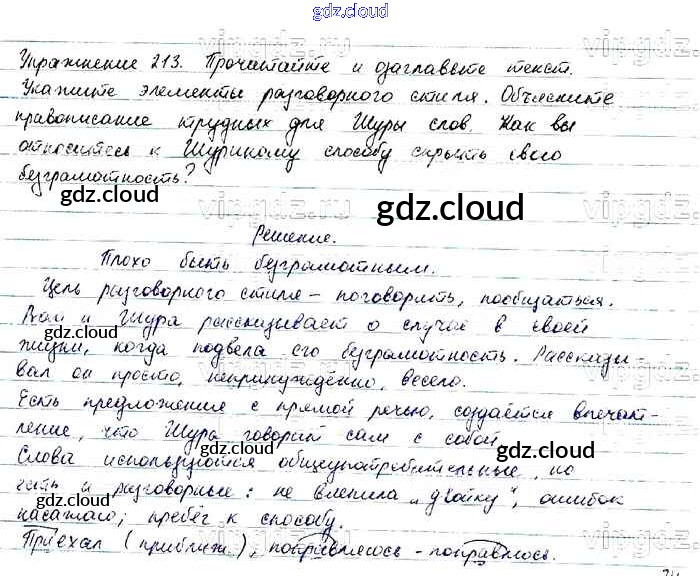 gdz.cloud
Упражнение 213. Прочитайте и озаглавьте текст.
Укажите элементы разговорного стиля. Объясните
правописание трудных для Шуры слов. Как вы
относитесь к Шуриному способу скрыть свою
безграмотность?
gdz.cloud
gdz.cloud
vipgdz.ru
Решение.
Плохо быть безграмотным.
Цель разговорного стиля – поговорить, пообщаться.
Вот и Шура рассказывает о случае в своей
gdz.cloud
жизни, когда подвела его безграмотность. Рассказы-
вал он просто, непринуждённо, весело.
Есть предложение с прямой речью, создаётся впечат-
ление, что Шура говорит сам с собой.
gdz.cloud
Слова используются общеупотребительные, но
есть и разговорные: не влепила „двойку", ошибок
насажаю; пребег к способу.
gdz.cloud
Приехал (приближ.), понравилось – понравлюсь.
gdz.cloud